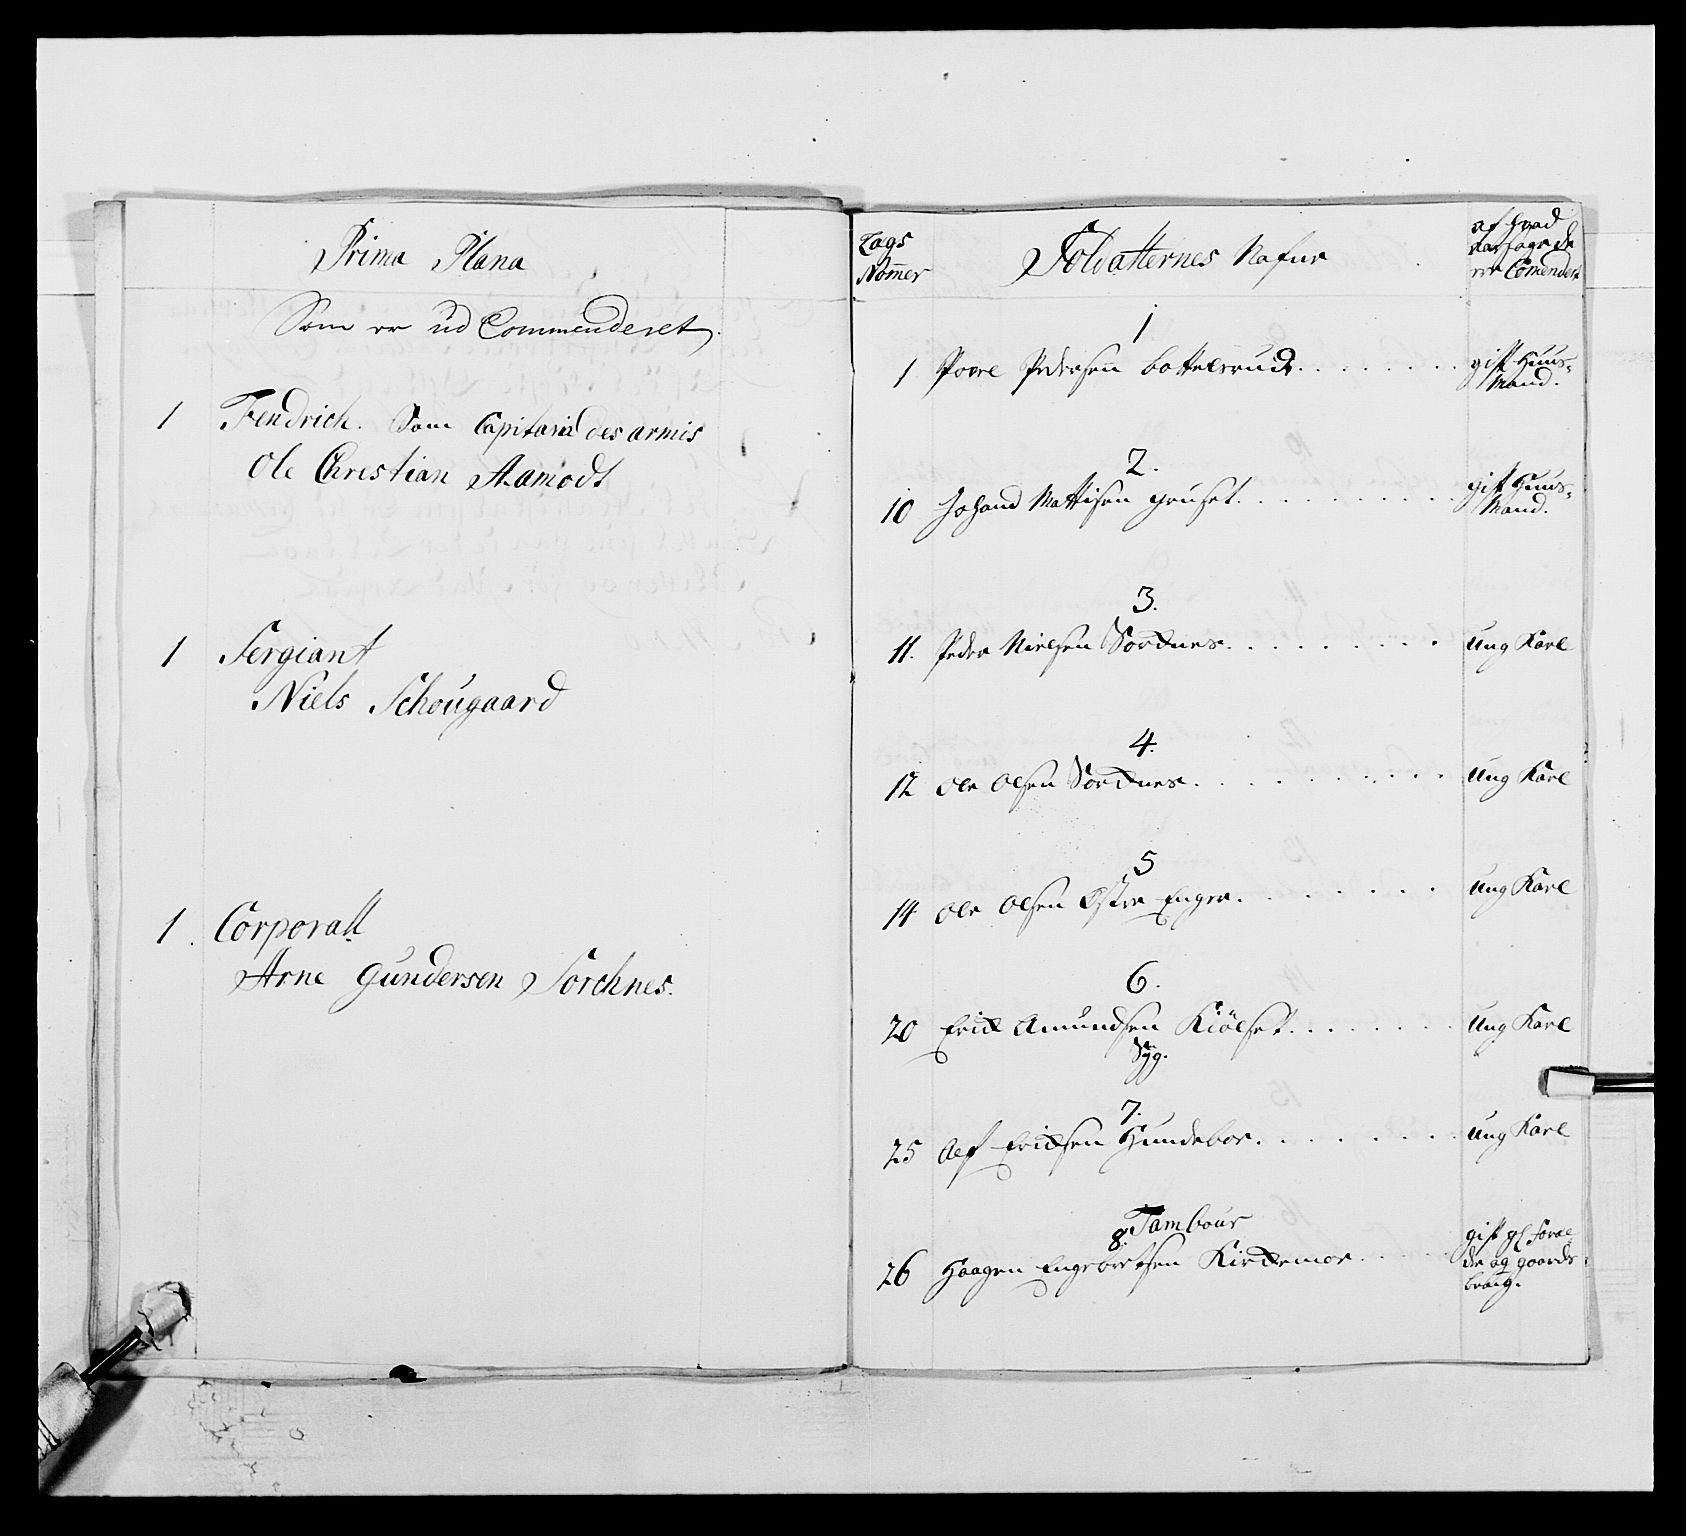 Prima Plana
Som er ud Commenderet
1 Fendrich. Som Capitain des armis
Ole Christian Aamodt
1 Sergiant
Niels Schougaard
1. Corporall
Arne Gundersen Sorchnes.
Lags Nommer
Soldatternes Nafne
af hvad
er Comendert
1
1 Povel Pedersen Bottelsrud........ gift Huus-
Mand.
2.
10 Johand Mattisen Gruset.......... gift Huus-
Mand.
3.
11. Peder Nielsen Sorcknes......... ung Karl
4.
12 Ole Olsen Sorcknes.......... ung Karl
5
14 Ole Olsen Østre Enger....... ung Karl
6.
20 Erick Amundsen Kiölset....... ung Karl
Syg.
7.
25 Olf Ericksen Hundeboe....... ung Karl
8. Tambour
26 Haagen Engebretsen Kirckemoe.... gift
og gaards
brug.